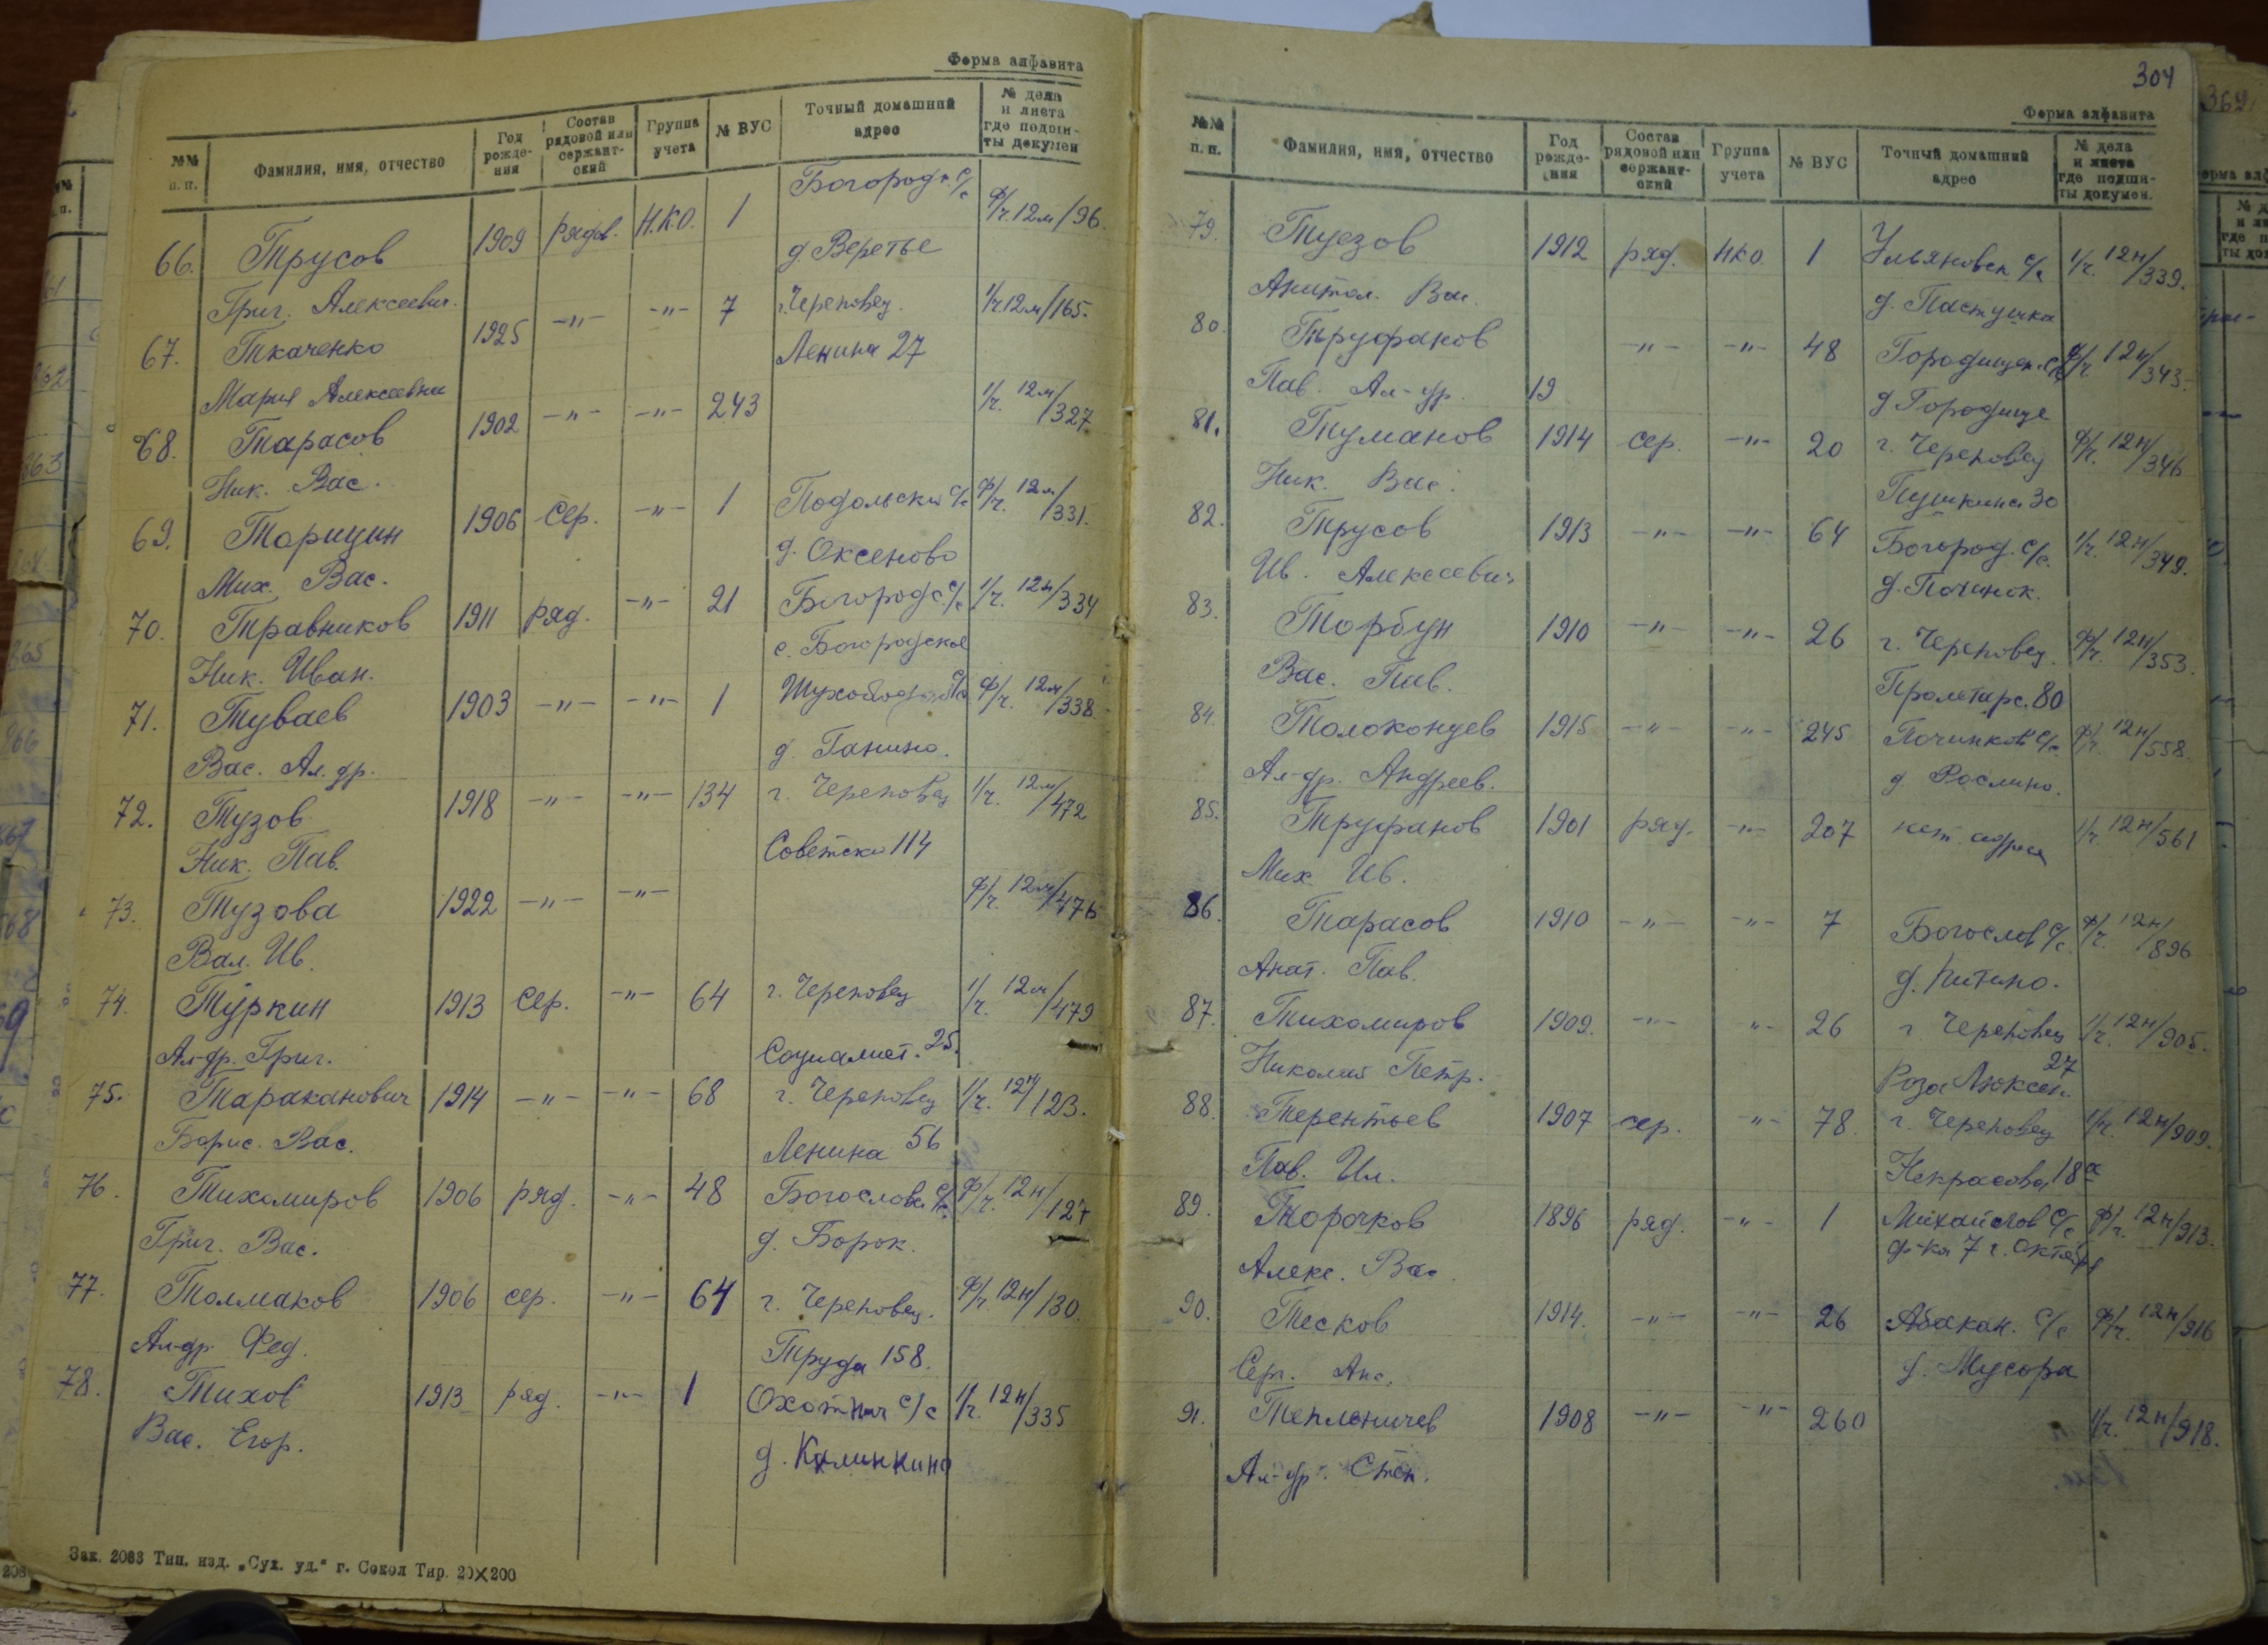 Форма алфавита
№№ п. п. Фамилия, имя, отчество Год рожде- ния Состав рядовой или сержант- ский Группа учета № ВУС Точный домашний адрес № дела и листа где подши- ты докумен
66. Трусов 1909 рядов. Н.К.О. 1 Богород. с/с ф/ч. 12м/96.
Григ. Алексеевич. д. Веретье
67. Ткаченко 1925 -"- -"- 7 г. Череповец. 1/ч 12м/165.
Мария Алексеевна Ленина 27
68. Тарасов 1902 -"- -"- 243 1/ч. 12м/327
Ник. Вас.
69. Торицин 1906 сер. -"- 1 Подольски с/с ф/ч. 12м/331.
Мих. Вас. д. Оксеново
70. Травников 1911 ряд. -"- 21 Богород с/с 1/ч. 12н/334
Ник. Иван. с. Богородское
71. Туваев 1903 -"- -"- 1 Шухобод с/с ф/ч. 12м/338.
Вас. Ал. др. д. Ганино.
72. Тузов 1918 -"- -"- 134 г. Череповец 1/ч. 12м/472
Ник. Пав. Советски 114
73. Тузова 1922 -"- -"- ф/ч. 12м/476
Вал. Ив.
74. Туркин 1913 сер. -"- 64 г. Череповец 1/ч. 12м/479
Ал-др. Григ. Социалист. 25.
75. Тараканович 1914 -"- -"- 68 г. Череповец 1/ч. 12н/123.
Борис. Вас. Ленина 56
76. Тихомиров 1906 ряд. -"- 48 Богослов. с/с ф/ч. 12н/127
Григ. Вас. д. Борок.
77. Толмаков 1906 сер. -"- 64 г. Череповец. ф/ч. 12н/130.
Ал-др. Фед. Труда 158.
78. Тихов 1913 ряд. -"- 1 Охотнич с/с 1/ч. 12н/335
Вас. Егор. д. Калинкино
Зак. 2083 Тип. изд. „Сух. уд." г. Сокол Тир. 20×200
304
Форма алфавита
№№ п. п. Фамилия, имя, отчество Год рожде- ния Состав рядовой или сержант- ский Группа учета № ВУС Точный домашний адрес № дела и листа где подши- ты докумен.
79. Туезов 1912 ряд. НКО 1 Ульяновск с/с 1/ч. 12н/339.
Анатол. Вас. д. Пастушка
80. Труфанов -"- -"- 48 Городищен. с/с ф/ч. 12н/343.
Пав. Ал-др. 19 д Городище
81. Туманов 1914 сер. -"- 20 г. Череповец ф/ч. 12н/346
Ник. Вас. Пушкина 30
82. Трусов 1913 -"- -"- 64 Богород. с/с. 1/ч. 12н/349.
Ив. Алексеевич д. Починок.
83. Торбун 1910 -"- -"- 26 г. Череповец. ф/ч. 12н/353.
Вас. Пав. Пролетарс. 80
84. Толоконцев 1915 -"- -"- 245 Починков с/с ф/ч. 12н/558.
Ал-др. Андреев. д Рослино.
85. Труфанов 1901 ряд. -"- 207 нет адреса 1/ч. 12н/561
Мих. Ив.
86. Тарасов 1910 -"- -"- 7 Богослов с/с ф/ч. 12н/896
Анат. Пав. д. Питино.
87. Тихомиров 1909. -"- "- 26 г. Череповец 1/ч. 12н/905.
Николай Петр. Роза Люксем. 27
88. Терентьев 1907 сер. "- 78 г. Череповец 1/ч. 12н/909.
Пав. Ил. Некрасова, 18а
89. Торочков 1896 ряд. -"- 1 Михайлов с/с ф/ч. 12н/913.
Алекс. Вас. ф-ка 7 г. октября
90. Тесков 1914. -"- -"- 26 Абакан. с/с ф/ч. 12н/916
Серг. Анс. д. Мусора
91. Тепленичев 1908 -"- -"- 260 1/ч. 12н/918.
Ал-др. Степ.